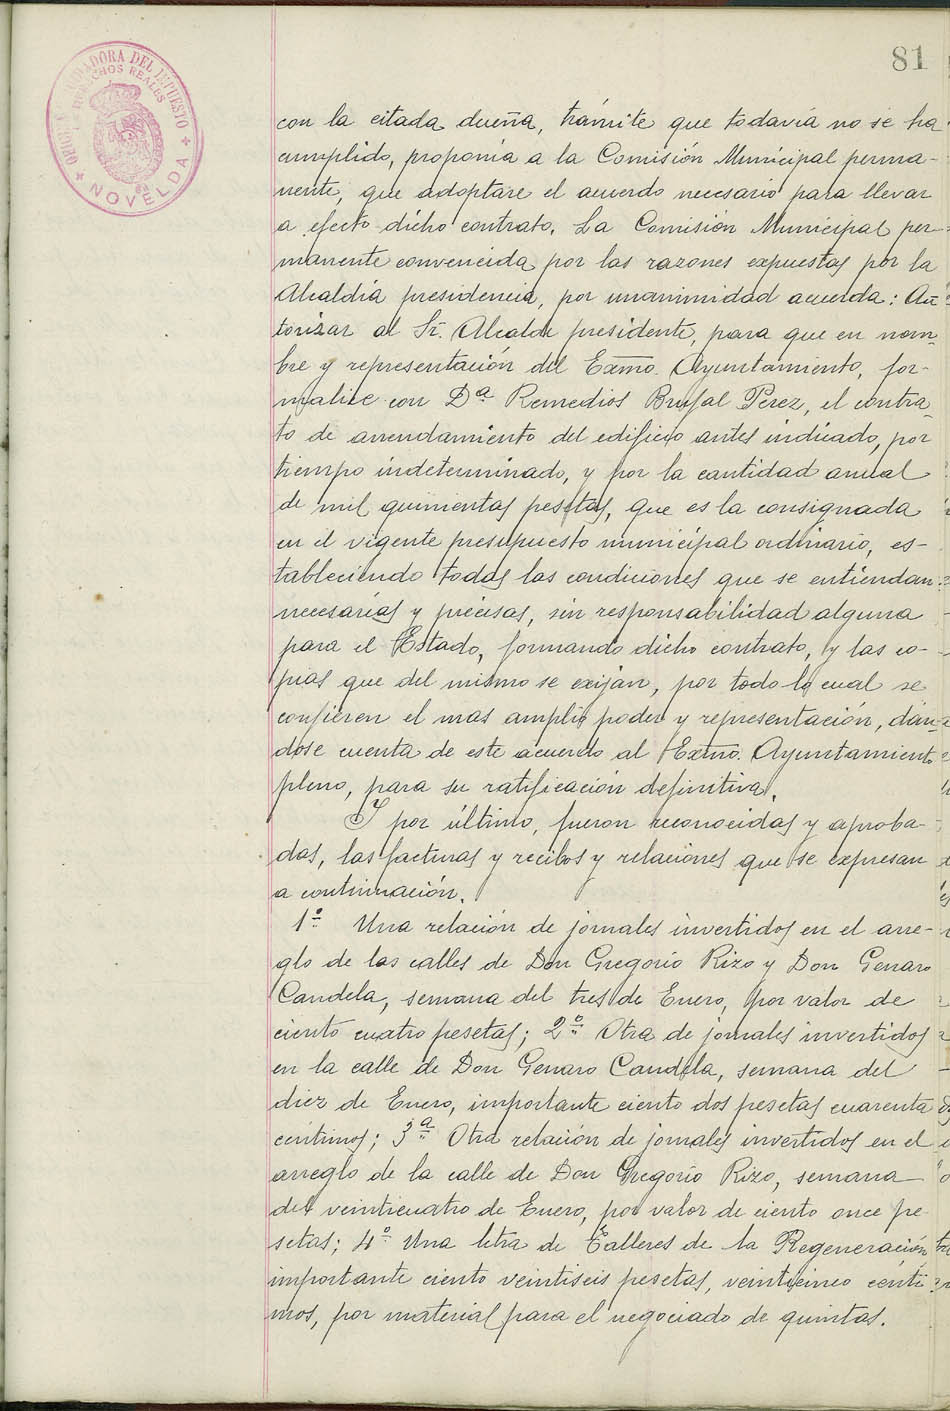 81
NOVELDA
con la citada dueña, trámite que todavía no se ha
cumplido, proponía a la Comisión Municipal perma-
nente, que adoptare el acuerdo necesario para llevar
a efecto dicho contrato. La Comisión Municipal per-
manente convencida por las razones expuestas por la
Alcaldía presidencia, por unanimidad acuerda: Au-
torizar al Sr. Alcalde presidente, para que en nom-
bre y representación del Exmo. Ayuntamiento, for-
malice con Dª Remedios Brufal Perez, el contra-
to de arrendamiento del edificio antes indicado, por
tiempo indeterminado, y por la cantidad anual
de mil quinientas pesetas, que es la consignada
en el vigente presupuesto municipal ordinario, es-
tableciendo todas las condiciones que se entiendan
necesarias y précisas, sin responsabilidad alguna
para el Estado, formando dicho contrato, y las co-
pias que del mismo se exijan, por todo lo cual se
confieren el mas amplio poder y representación, dán-
dose cuenta de este acuerdo al Extmo. Ayuntamiento
pleno, para su ratificación definitiva.
Y por último, fueron reconocidas y aproba-
das, las facturas y recibos y relaciones que se expresan
a continuación.
1º Una relación de jornales invertidos en el arre-
glo de las calles de Don Gregorio Rizo y Don Genaro
Candela, semana del tres de Enero, por valor de
ciento cuatro pesetas; 2º Otra de jornales invertidos
en la calle de Don Genaro Candela, semana del
diez de Enero, importante ciento dos pesetas cuarenta
centimos; 3ª Otra relación de jornales invertidos en el
arreglo de la calle de Don Gregorio Rizo, semana
del veinticuatro de Enero, por valor de ciento once pe-
setas; 4º Una letra de Talleres de la Regeneración
importante ciento veintiseis pesetas, veinticinco cénti-
mos, por material para el negociado de quintas.